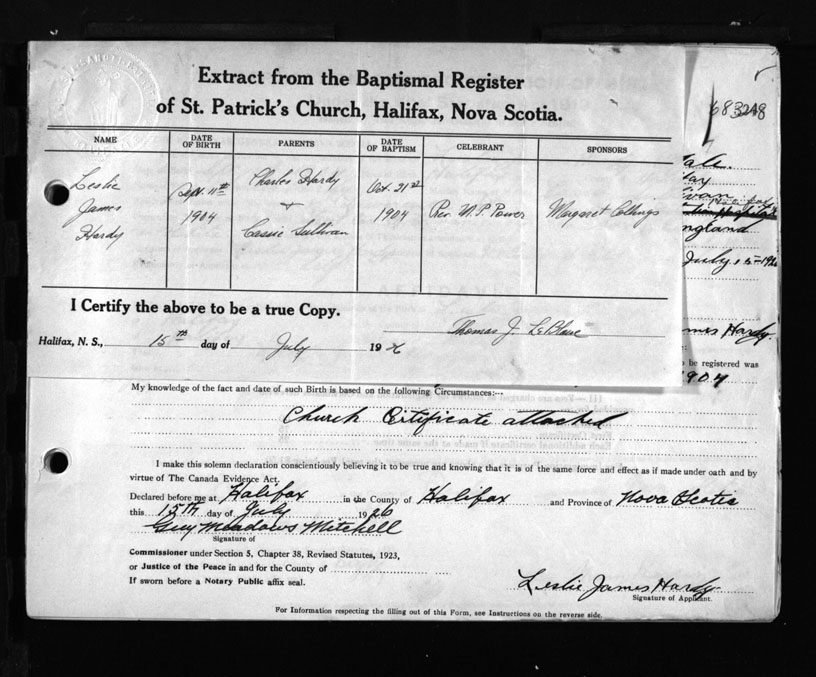 Extract from the Baptismal Register
of St. Patrick's Church, Halifax, Nova Scotia.
683248
NAME DATE OF BIRTH PARENTS DATE OF BAPTISM CELEBRANT SPONSORS
Leslie James Hardy
Sept. 11th 1904
Charles Hardy
+
Cassie Sullivan
Oct. 21st 1904
Rev. W. P. Power
Margaret Collings
England
July 15-1926
I Certify the above to be a true Copy.
Thomas J. LeBlanc
Halifax, N. S., 15th day of July 1926
James Hardy.
be registered was
1904
My knowledge of the fact and date of such Birth is based on the following Circumstances:--
Church Certificate attached
I make this solemn declaration conscientiously believing it to be true and knowing that it is of the same force and effect as if made under oath and by
virtue of The Canada Evidence Act.
Declared before me at Halifax in the County of Halifax and Province of Nova Scotia
this 15TH day of July 1926
Guy Meadows Mitchell
Signature of
Commissioner under Section 5, Chapter 38, Revised Statutes, 1923,
or Justice of the Peace in and for the County of
If sworn before a Notary Public affix seal.
Leslie James Hardy
Signature of Applicant.
For Information respecting the filling out of this Form, see Instructions on the reverse side.